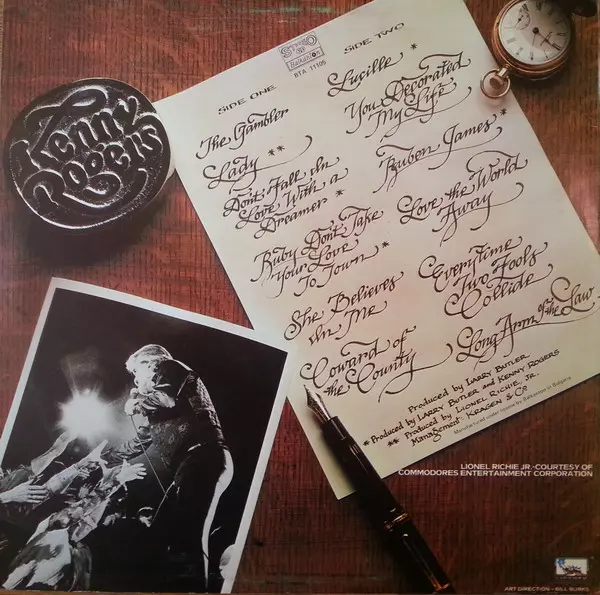 Kenny
Rogers
STEREO
Balkanton
BTA 11105
SIDE ONE
The Gambler
Lady **
Don't Fall In
Love With a
Dreamer *
Ruby Don't Take
Your Love
To Town *
She Believes
In Me
Coward of
the County
SIDE TWO
Lucille *
You Decorated
My Life
Ruben James *
Love the World
Away
Everytime
Two Fools
Collide
Long Arm of the Law
Produced by LARRY BUTLER
* Produced by LARRY BUTLER and KENNY ROGERS
** Produced by LIONEL RICHIE, JR.
Management: KRAGEN & Co.
Manufactured under license by Balkanton in Bulgaria
LIONEL RICHIE JR.-COURTESY OF
COMMODORES ENTERTAINMENT CORPORATION
ART DIRECTION - BILL BURKS